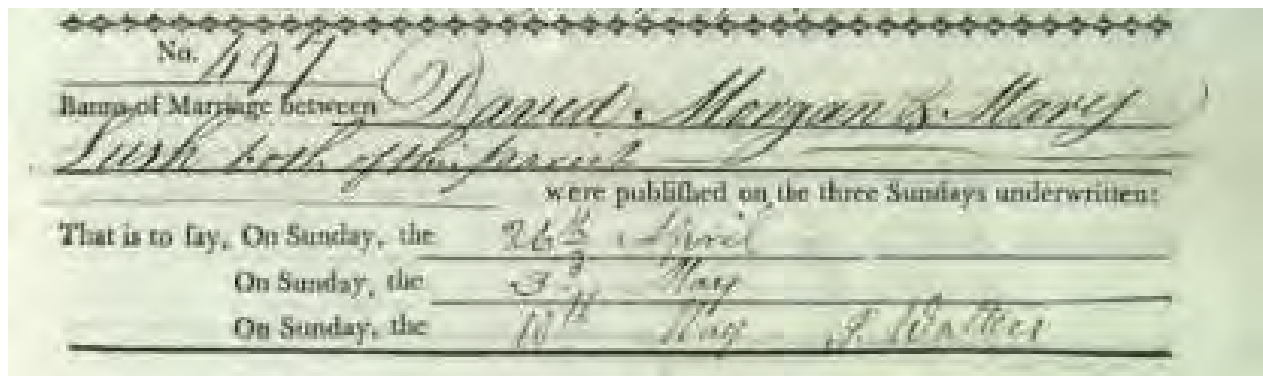 No. 497
Banns of Marriage between David Morgan & Mary
Lush both of this parish
were publiſhed on the three Sundays underwritten:
That is to ſay, On Sunday, the 26th April
On Sunday, the 3d May
On Sunday, the 10th May J. Walker